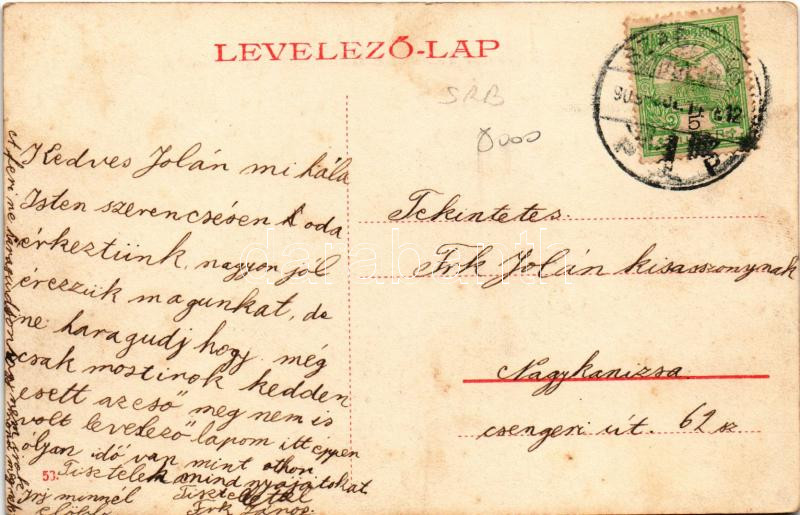 LEVELEZŐ-LAP
SRB
8000
Kedves Jolán mi hála
Isten szerencsésen oda
érkeztünk, nagyon jól
érezzük magunkat, de
ne haragudj hogy még
csak most irok kedden
esett az eső meg nem is
volt levelező lapom itt éppen
olyan idő van mint othon
Tisztelek mind nyájatokat
Irj minnél
Tisztelettel
Frk János.
Tekintetes
Frk Jolán kisasszonynak
Nagykanizsa
csengeri út. 62 sz
53.
5